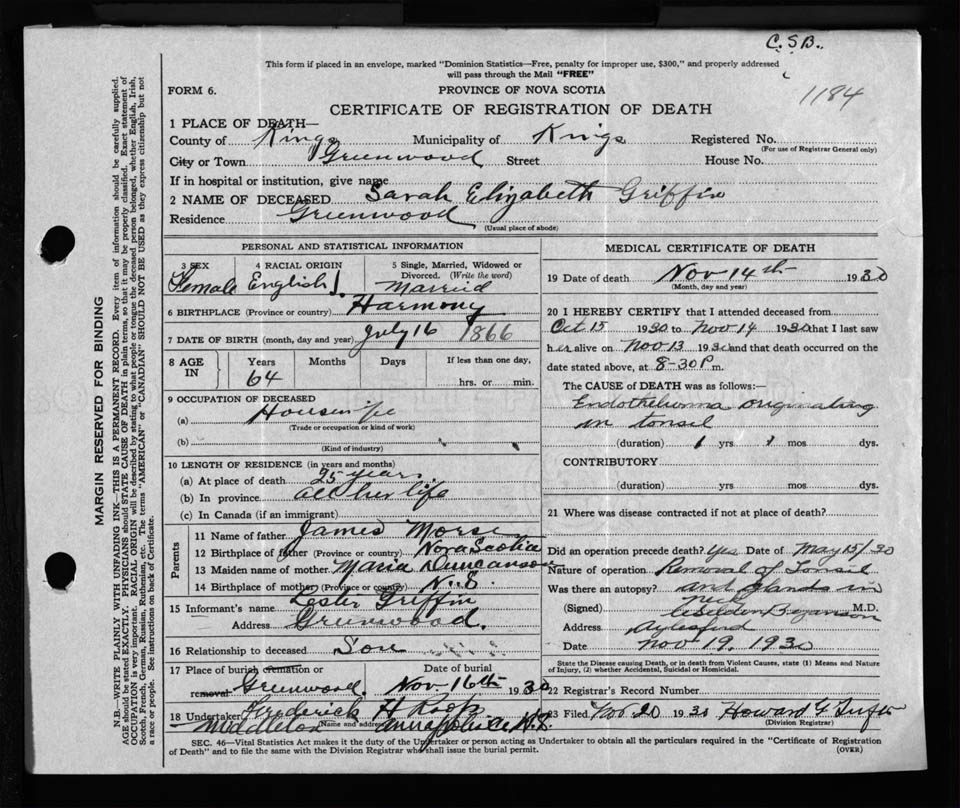 C.S.B.
This form if placed in an envelope, marked "Dominion Statistics—Free, penalty for improper use, $300," and properly addressed
will pass through the Mail "FREE"
1184
FORM 6.
PROVINCE OF NOVA SCOTIA
CERTIFICATE OF REGISTRATION OF DEATH
1 PLACE OF DEATH—
County of Kings Municipality of Kings Registered No.
(For use of Registrar General only)
City or Town Greenwood Street House No.
If in hospital or institution, give name
2 NAME OF DECEASED Sarah Elizabeth Griffin
Residence Greenwood
(Usual place of abode)
PERSONAL AND STATISTICAL INFORMATION
3 SEX 4 RACIAL ORIGIN 5 Single, Married, Widowed or
Divorced. (Write the word)
Female English Married
6 BIRTHPLACE (Province or country) Harmony
7 DATE OF BIRTH (month, day and year) July 16 1866
8 AGE IN Years Months Days If less than one day,
64 hrs. or min.
9 OCCUPATION OF DECEASED
(a) Housewife
(Trade or occupation or kind of work)
(b)
(Kind of industry)
10 LENGTH OF RESIDENCE (in years and months)
(a) At place of death 25 years
(b) In province all her life
(c) In Canada (if an immigrant)
Parents
11 Name of father James Morse
12 Birthplace of father (Province or country) Nova Scotia
13 Maiden name of mother Maria Duncanson
14 Birthplace of mother (Province or country) N.S.
15 Informant's name Lester Griffin
Address Greenwood.
16 Relationship to deceased Son
17 Place of burial cremation or Date of burial
removal Greenwood. Nov 16th 1930
18 Undertaker Frederick H Roop
(Name and address)
Middleton Annapolis Co N.S.
MEDICAL CERTIFICATE OF DEATH
19 Date of death Nov 14th 1930
(Month, day and year)
20 I HEREBY CERTIFY that I attended deceased from
Oct 15 1930 to Nov 14 1930 that I last saw
her alive on Nov 13 1930 and that death occurred on the
date stated above, at 8-30 P m.
The CAUSE of DEATH was as follows:—
Endothelioma originating
in tonsil
(duration) 1 yrs 1 mos dys.
CONTRIBUTORY
(duration) yrs. mos. dys.
21 Where was disease contracted if not at place of death?
Did an operation precede death? Yes Date of May 15/30
Nature of operation Removal of Tonsil
Was there an autopsy? and glands in
neck
(Signed) M.D.
Address Aylesford
Date Nov 19, 1930
State the Disease causing Death, or in death from Violent Causes, state (1) Means and Nature
of Injury, and (2) whether Accidental, Suicidal or Homicidal.
22 Registrar's Record Number
23 Filed Nov 20 1930 Howard G
(Division Registrar)
SEC. 46—Vital Statistics Act makes it the duty of the Undertaker or person acting as Undertaker to obtain all the particulars required in the "Certificate of Registration
of Death" and to file the same with the Division Registrar who shall issue the burial permit.
(OVER)
MARGIN RESERVED FOR BINDING
N.B.—WRITE PLAINLY WITH UNFADING INK—THIS IS A PERMANENT RECORD. Every item of information should be carefully supplied.
AGE should be stated EXACTLY. PHYSICIANS should STATE CAUSE OF DEATH in plain terms, so that it may be properly classified. Exact statement of
OCCUPATION is very important. RACIAL ORIGIN will be described by stating to what people or tongue the deceased person belonged, whether English, Irish,
Scotch, French, German, Russian, Ruthenian, etc. The terms "AMERICAN" or "CANADIAN" SHOULD NOT BE USED as they express citizenship but not
a race or people. See instructions on back of Certificate.